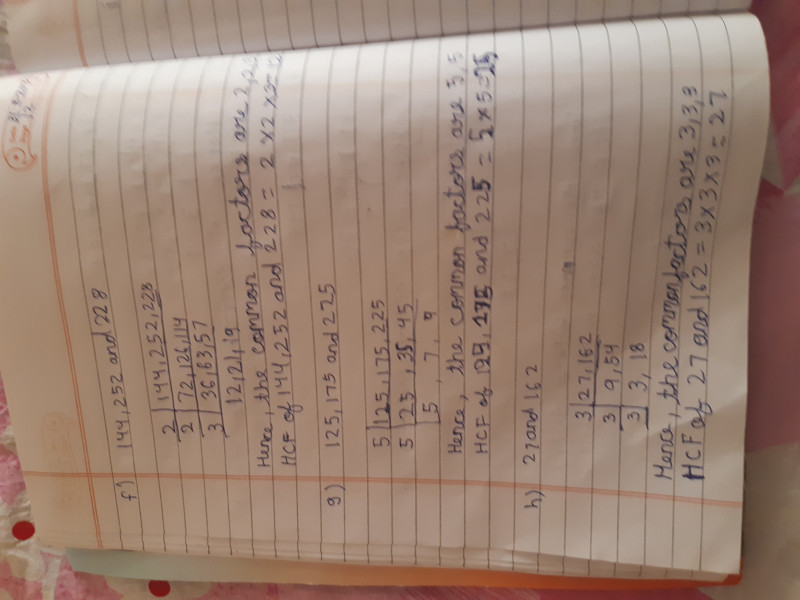 f) 144, 252 and 228
2 | 144, 252, 228
2 | 72, 126, 114
3 | 36, 63, 57
12, 21, 19
Hence, the common factors are 2, 2,
HCF of 144, 252 and 228 = 2 × 2 × 3 = 12
g) 125, 175 and 225
5 | 125, 175, 225
5 | 25, 35, 45
5, 7, 9
Hence, the common factors are 5, 5
HCF of 125, 175 and 225 = 5 × 5 = 25
h) 27 and 162
3 | 27, 162
3 | 9, 54
3 | 3, 18
Hence, the common factors are 3, 3, 3
HCF of 27 and 162 = 3 × 3 × 3 = 27